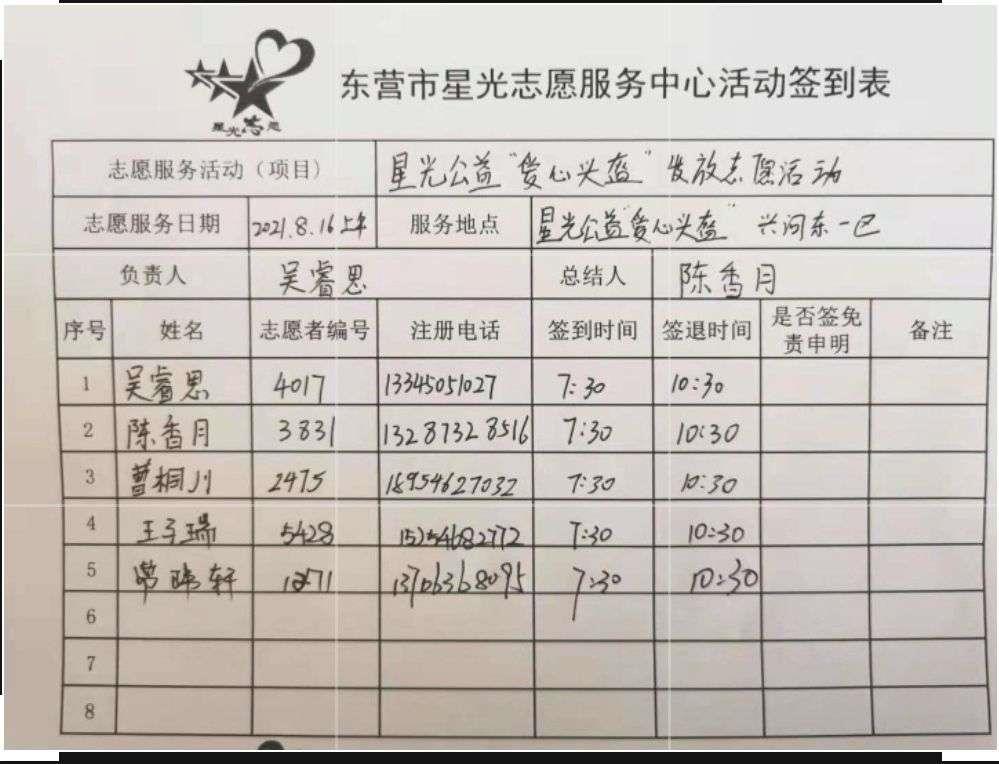 星光志愿
东营市星光志愿服务中心活动签到表
志愿服务活动（项目） 星光公益“爱心头盔”发放志愿活动
志愿服务日期 2021.8.16上午 服务地点 星光公益“爱心头盔” 兴河东一区
负责人 吴睿思 总结人 陈香月
序号 姓名 志愿者编号 注册电话 签到时间 签退时间 是否签免责申明 备注
1 吴睿思 4017 13345051027 7:30 10:30
2 陈香月 3831 13287328516 7:30 10:30
3 曹桐川 2475 18954627032 7:30 10:30
4 王子瑞 5428 15254682772 7:30 10:30
5 常 轩 13706368095 7:30 10:30
6
7
8